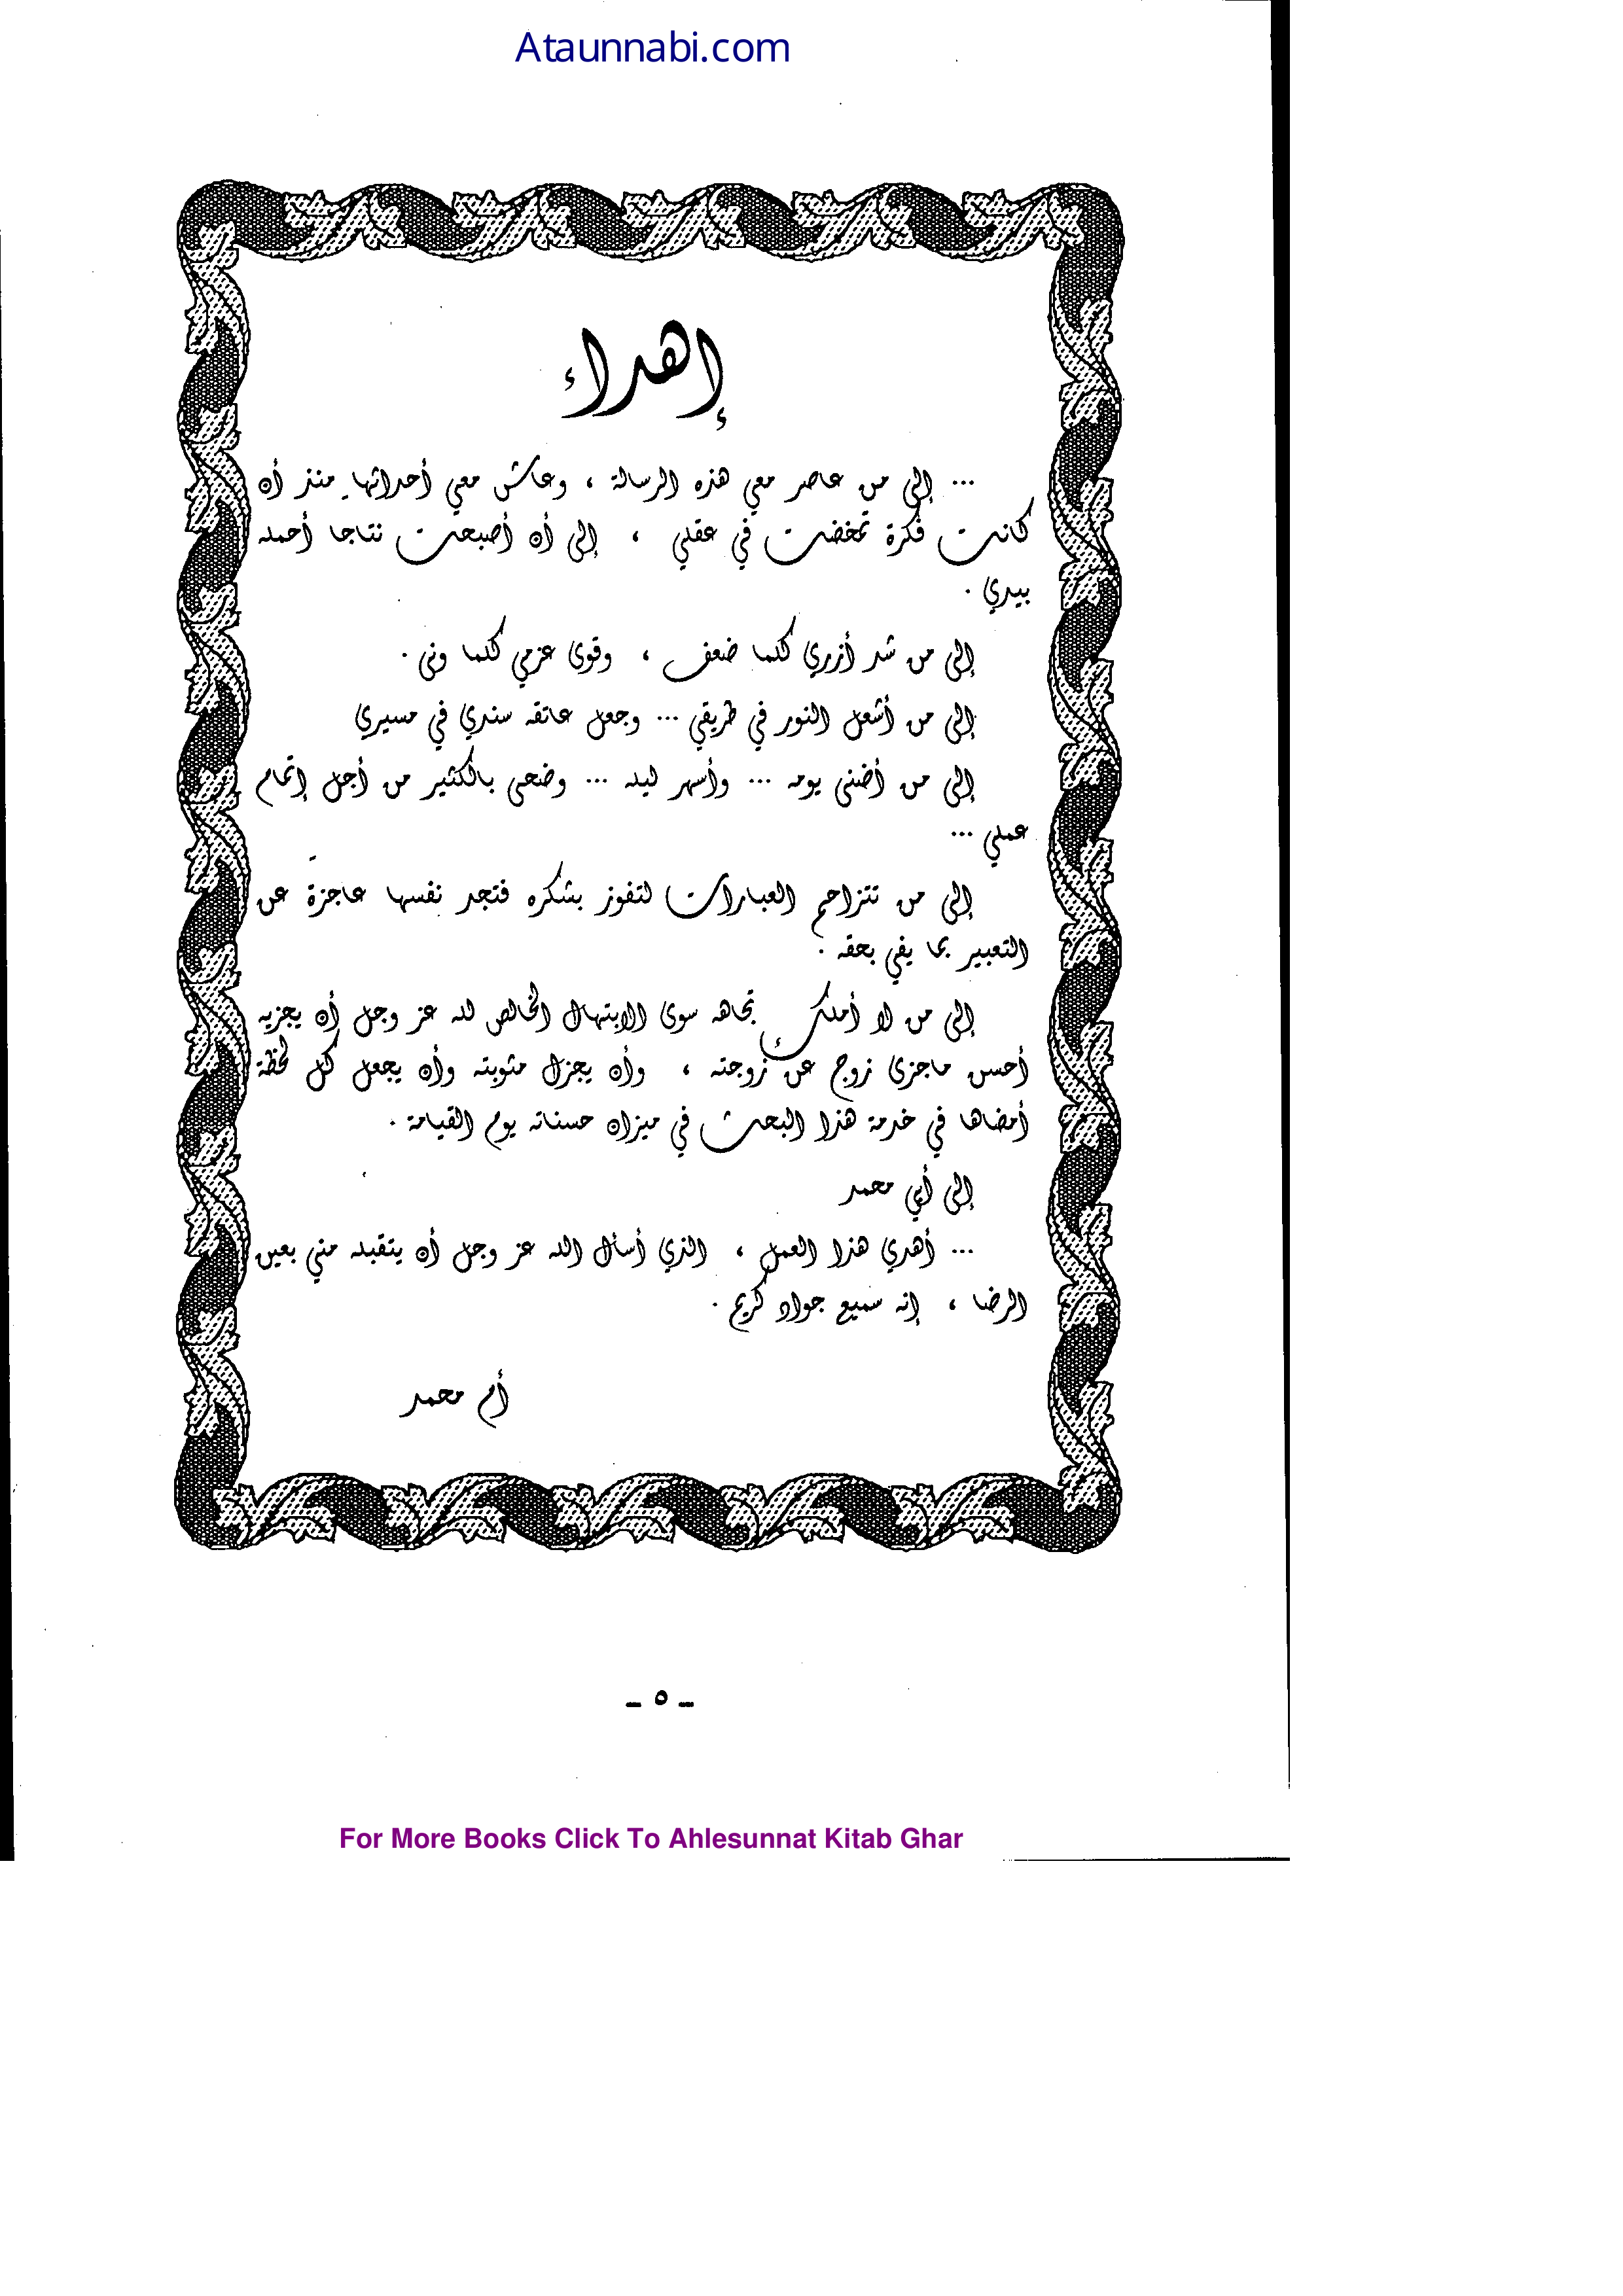 Ataunnabi.com
إهداء
... إلى من عاصر معي هذه الرسالة ، وعاش معي أحداثها منذ أن
كانت فكرة تمخضت في عقلي ، إلى أن أصبحت نتاجا أحمله
بيدي .
إلى من شد أزري كلما ضعف ، وقوى عزمي كلما ونى .
إلى من أشعل النور في طريقي ... وجعل عاتقه سندي في مسيري
إلى من أضنى يومه ... وأسهر ليله ... وضحى بالكثير من أجل إتمام
عملي ...
إلى من تتزاحم العبارات لتفوز بشكره فتجد نفسها عاجزة عن
التعبير بما يفي بحقه .
إلى من لا أملك تجاهه سوى الابتهال الخالص لله عز وجل أن يجزيه
أحسن ماجزى زوج عن زوجته ، وأن يجزل مثوبته وأن يجعل كل لحظة
أمضاها في خدمة هذا البحث في ميزان حسناته يوم القيامة .
إلى أبي محمد
... أهدي هذا العمل ، الذي أسأل الله عز وجل أن يتقبله مني بعين
الرضا ، إنه سميع جواد كريم .
أم محمد
- ٥ -
For More Books Click To Ahlesunnat Kitab Ghar